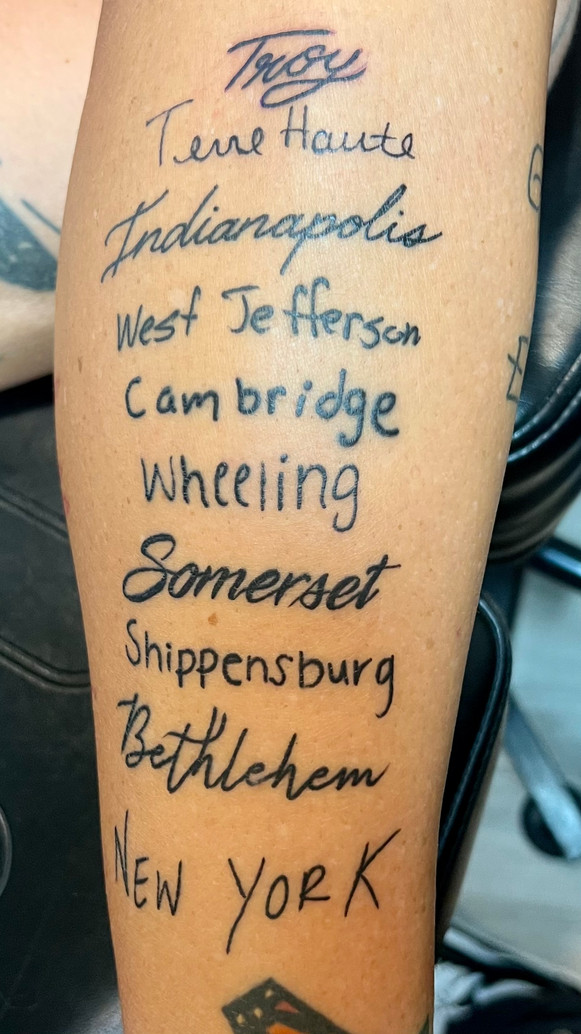 Troy
Terre Haute
Indianapolis
West Jefferson
Cambridge
Wheeling
Somerset
Shippensburg
Bethlehem
NEW YORK